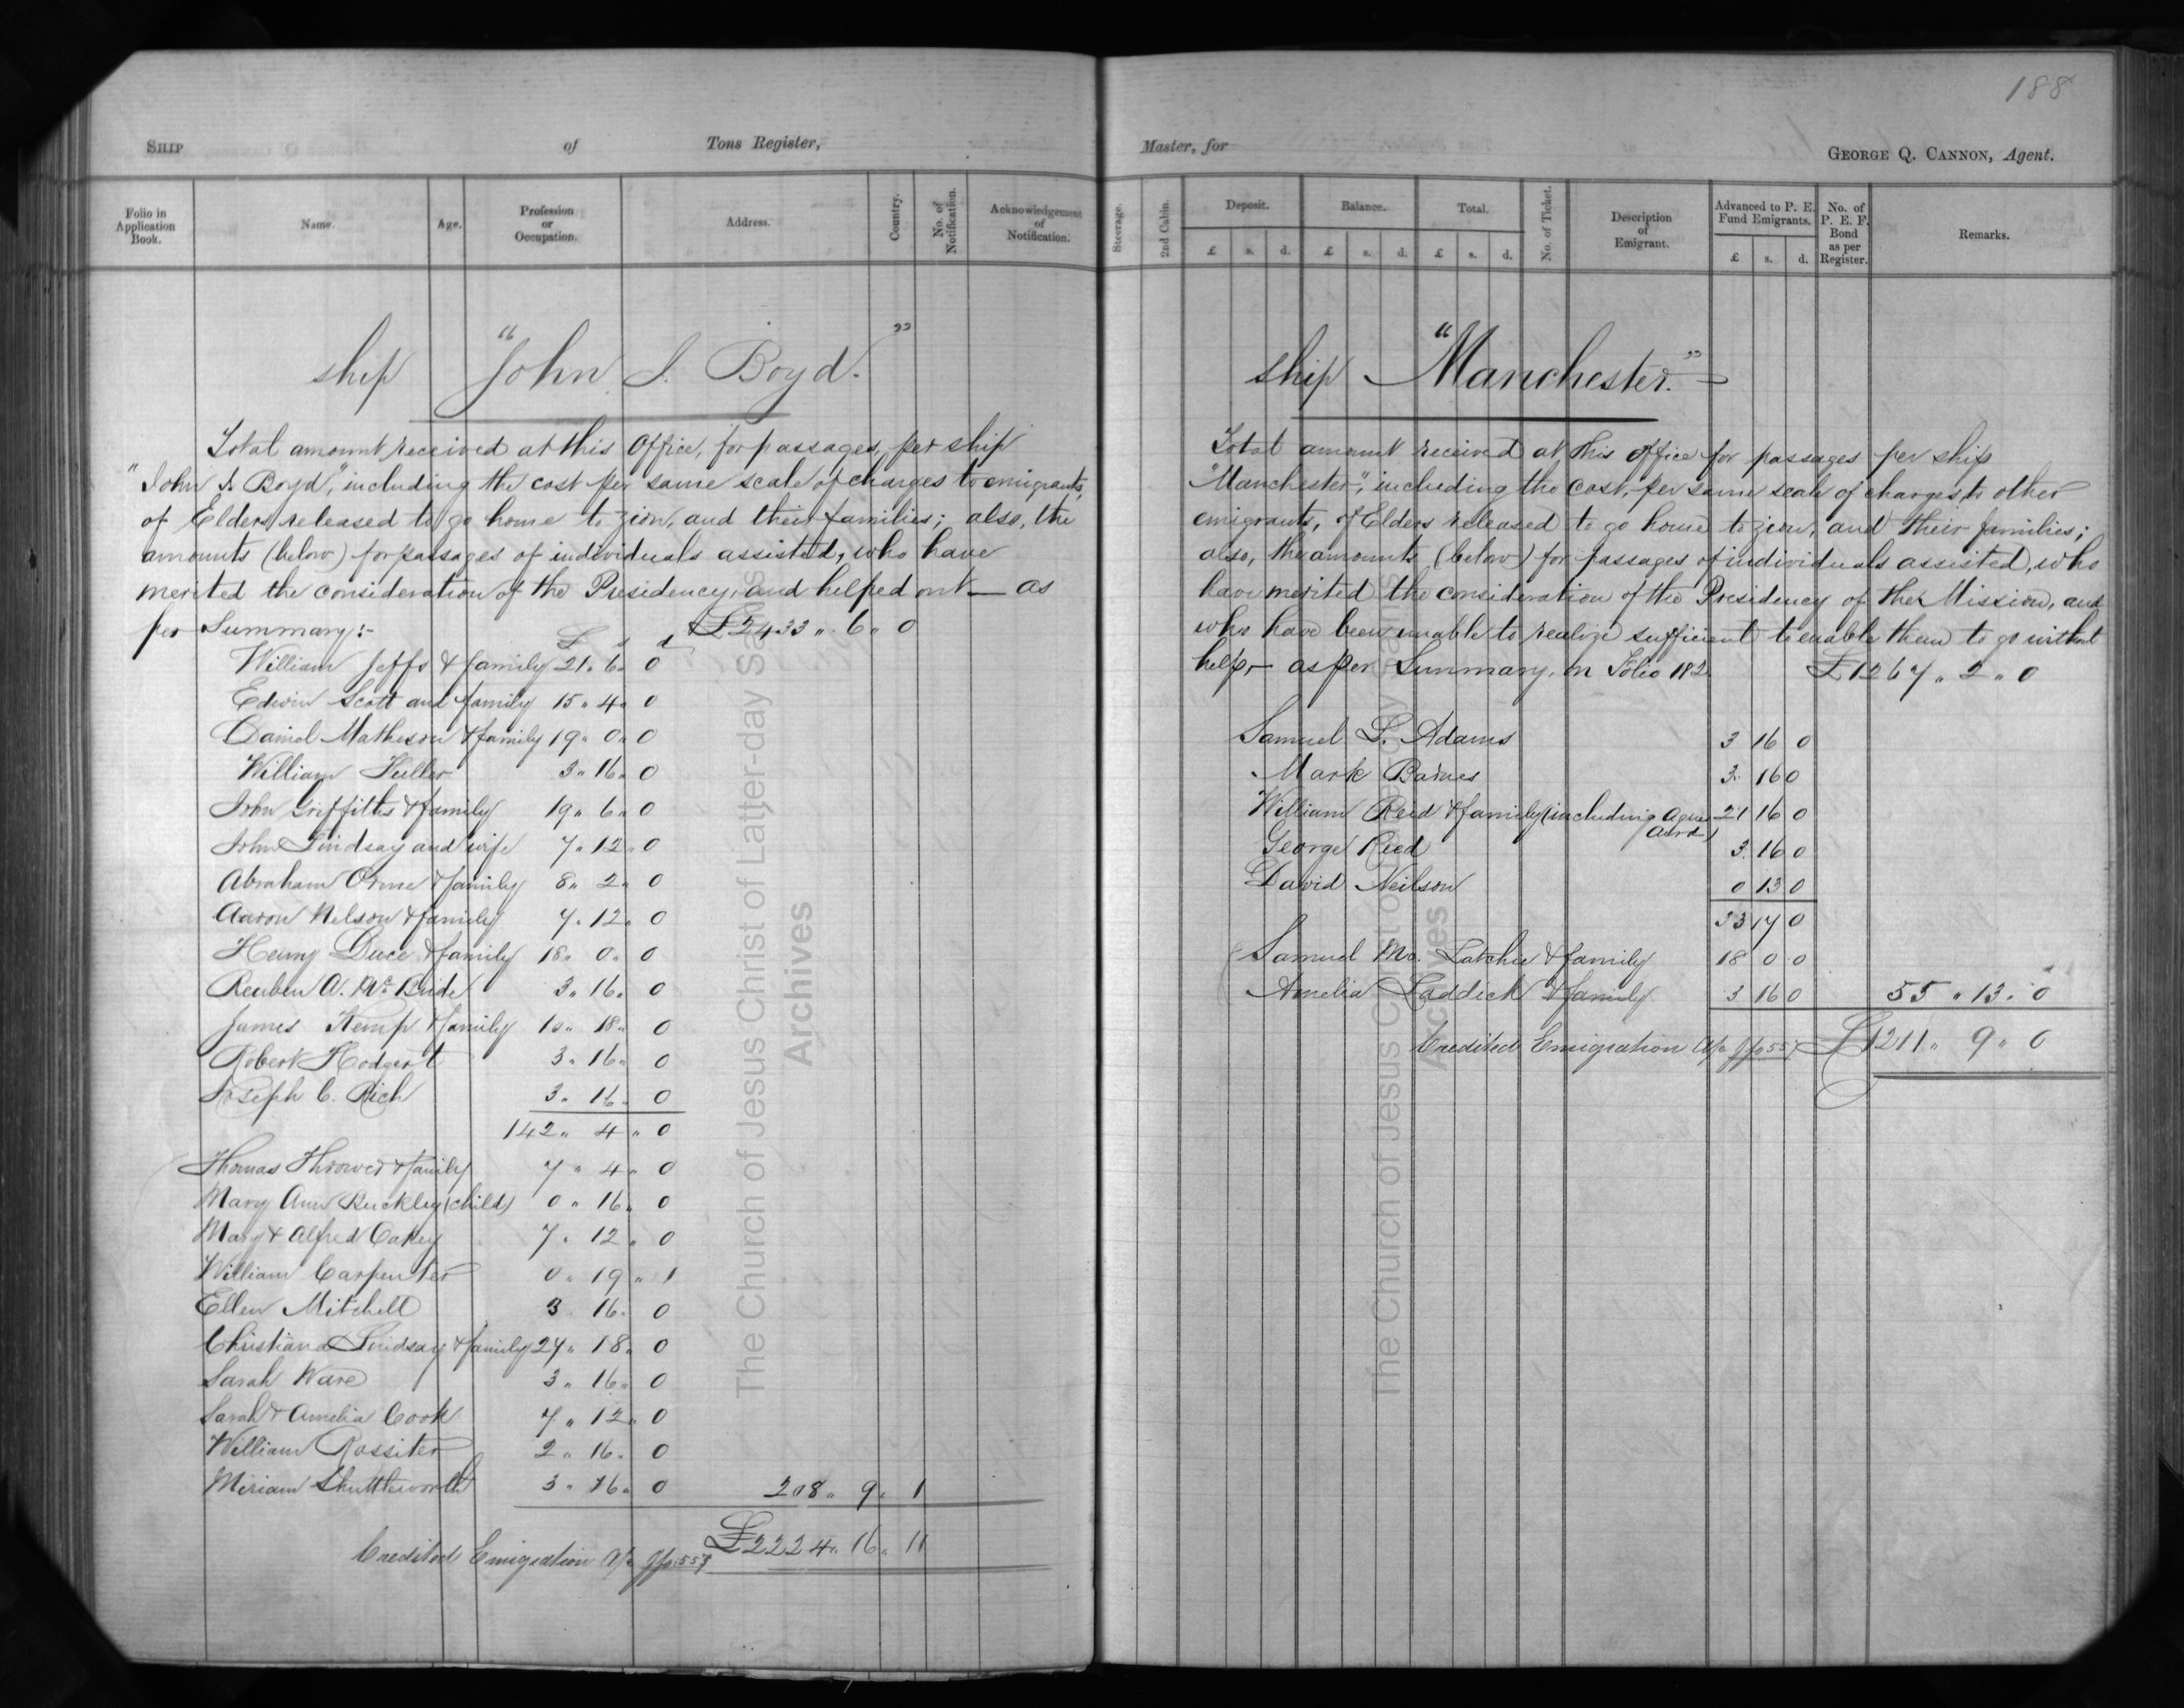 188
SHIP of Tons Register,
Master, for GEORGE Q. CANNON, Agent.
Folio in Application Book. Name. Age. Profession or Occupation. Address. Country. No. of Notification. Acknowledgement of Notification.
Steerage. 2nd Cabin. Deposit. Balance. Total. No. of Ticket. Description of Emigrant. Advanced to P. E. Fund Emigrants. No. of P. E. F. Bond as per Register. Remarks.
£ s. d. £ s. d. £ s. d. £ s. d.
ship "John J. Boyd."
Total amount received at this Office, for passages, per ship
"John J. Boyd", including the cost per same scale of charges to emigrants,
of Elders released to go home to zion, and their families; also, the
amounts (below) for passages of individuals assisted, who have
merited the consideration of the Presidency, and helped out — as
per Summary:- £2433 " 6 " 0
£ s d
William Jeffs & family 21 " 6 " 0
Edwin Scott and family 15 " 4 " 0
Daniel Matheson & family 19 " 0 " 0
William Fuller 3 " 16 " 0
John Griffiths & family 19 " 6 " 0
John Lindsay and wife 7 " 12 " 0
Abraham Orme & family 8 " 2 " 0
Aaron Nelson & family 7 " 12 " 0
Henry Duce & family 18 " 0 " 0
Reuben A. Mc Bride 3 " 16 " 0
James Kemp & family 10 " 18 " 0
Robert Hodgert 3 " 16 " 0
Joseph C. Rich 3 " 16 " 0
142 " 4 " 0
Thomas Thrower & family 7 " 4 " 0
Mary Ann Buckley (child) 0 " 16 " 0
Mary & Alfred Oakey 7 " 12 " 0
William Carpenter 0 " 19 " 1
Ellen Mitchell 3 " 16 " 0
Christiana Lindsay & family 27 " 18 " 0
Sarah Ware 3 " 16 " 0
Sarah & Amelia Cook 7 " 12 " 0
William Rossiter 2 " 16 " 0
Miriam Shuttleworth 3 " 16 " 0 208 " 9 " 1
Credited Emigration A/c 557 £2224 " 16 " 11
ship "Manchester." —
Total amount received at this office for passages per ship
"Manchester", including the cost, per same scale of charges to other
emigrants, of Elders released to go home to zion, and their families;
also, the amounts (below) for passages of individuals assisted, who
have merited the consideration of the Presidency of the Mission, and
who have been unable to realize sufficient to enable them to go without
help,— as per Summary, on Folio 182 £1267 " 2 " 0
Samuel L. Adams 3 16 0
Mark Barnes 3 16 0
William Reid & family (including Agnes 21 16 0
Aird)
George Reed 3 16 0
David Neilson 0 13 0
33 17 0
Samuel Mc. Latchie & family 18 0 0
Amelia Laddick & family 3 16 0 55 " 13 " 0
Credited Emigration A/c 557 £1211 " 9 " 0
The Church of Jesus Christ of Latter-day Saints
Archives
The Church of Jesus Christ of Latter-day Saints
Archives